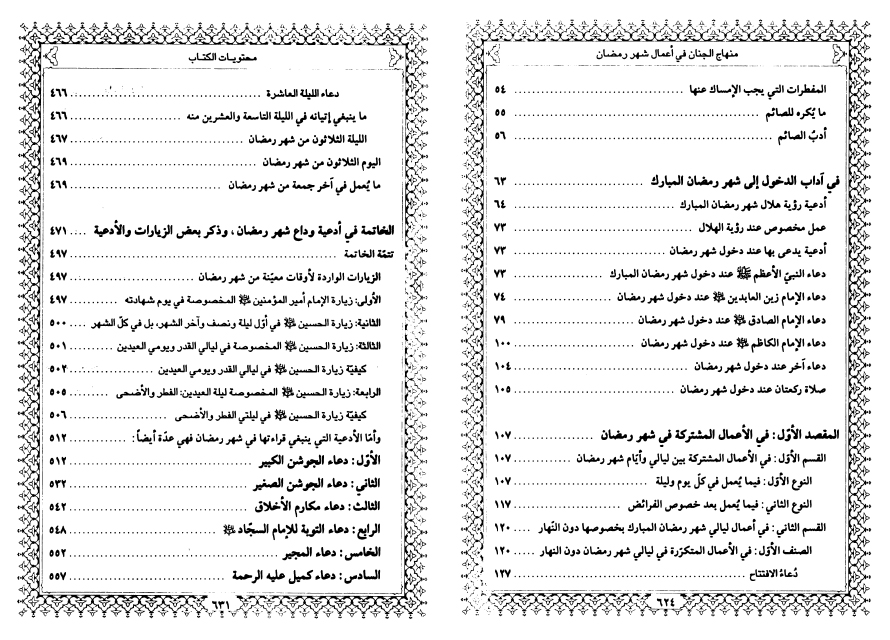 منهاج الجنان في أعمال شهر رمضان
المفطرات التي يجب الإمساك عنها ............ ٥٤
ما يُكره للصائم ............ ٥٥
أدبُ الصائم ............ ٥٦
في آداب الدخول إلى شهر رمضان المبارك ............ ٦٣
أدعية رؤية هلال شهر رمضان المبارك ............ ٦٤
عمل مخصوص عند رؤية الهلال ............ ٧٣
أدعية يدعى بها عند دخول شهر رمضان ............ ٧٣
دعاء النبيّ الأعظم ﷺ عند دخول شهر رمضان المبارك ............ ٧٣
دعاء الإمام زين العابدين عند دخول شهر رمضان ............ ٧٤
دعاء الإمام الصادق عند دخول شهر رمضان ............ ٧٩
دعاء الإمام الكاظم عند دخول شهر رمضان ............ ١٠٠
دعاء آخر عند دخول شهر رمضان ............ ١٠٤
صلاة ركعتان عند دخول شهر رمضان ............ ١٠٥
المقصد الأوّل: في الأعمال المشتركة في شهر رمضان ............ ١٠٧
القسم الأوّل: في الأعمال المشتركة بين ليالي وأيّام شهر رمضان ............ ١٠٧
النوع الأوّل: فيما يُعمل في كلّ يوم وليلة ............ ١٠٧
النوع الثاني: فيما يُعمل بعد خصوص الفرائض ............ ١١٧
القسم الثاني: في أعمال ليالي شهر رمضان المبارك بخصوصها دون النّهار ............ ١٢٠
الصنف الأوّل: في الأعمال المتكرّرة في ليالي شهر رمضان دون النهار ............ ١٢٠
دُعاءُ الافتتاح ............ ١٢٧
٦٢٤
محتويات الكتاب
دعاء الليلة العاشرة ............ ٤٦٦
ما ينبغي إتيانه في الليلة التاسعة والعشرين منه ............ ٤٦٦
الليلة الثلاثون من شهر رمضان ............ ٤٦٧
اليوم الثلاثون من شهر رمضان ............ ٤٦٩
ما يُعمل في آخر جمعة من شهر رمضان ............ ٤٦٩
الخاتمة في أدعية وداع شهر رمضان، وذكر بعض الزيارات والأدعية .... ٤٧١
تتمّة الخاتمة ............ ٤٩٧
الزيارات الواردة لأوقات معيّنة من شهر رمضان ............ ٤٩٧
الأولى: زيارة الإمام أمير المؤمنين المخصوصة في يوم شهادته ............ ٤٩٧
الثانية: زيارة الحسين في أوّل ليلة ونصف وآخر الشهر، بل في كلّ الشهر ... ٥٠٠
الثالثة: زيارة الحسين المخصوصة في ليالي القدر ويومي العيدين ............ ٥٠١
كيفيّة زيارة الحسين في ليالي القدر ويومي العيدين ............ ٥٠٢
الرابعة: زيارة الحسين المخصوصة ليلة العيدين: الفطر والأضحى ............ ٥٠٥
كيفيّة زيارة الحسين في ليلتي الفطر والأضحى ............ ٥٠٦
وأمّا الأدعية التي ينبغي قراءتها في شهر رمضان فهي عدّة أيضاً: ............ ٥١٢
الأوّل: دعاء الجوشن الكبير ............ ٥١٢
الثاني: دعاء الجوشن الصغير ............ ٥٣٢
الثالث: دعاء مكارم الأخلاق ............ ٥٤٢
الرابع: دعاء التوبة للإمام السجّاد ............ ٥٤٨
الخامس: دعاء المجير ............ ٥٥٢
السادس: دعاء كميل عليه الرحمة ............ ٥٥٧
٦٣١